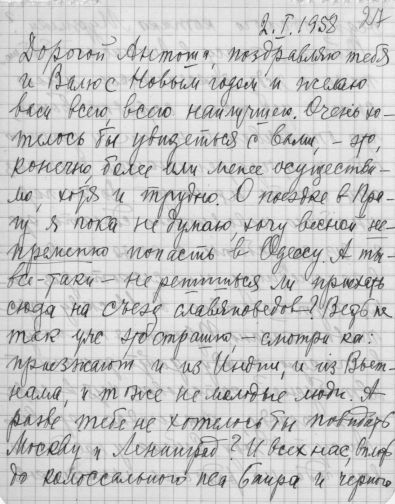 2.I.1958 217
Дорогой Антоша, поздравляю тебя
и Валю с Новым годом и желаю
вам всего, всего наилучшего. Очень хо-
телось бы увидеться с вами, – это,
конечно, более или менее осуществи-
мо, хотя и трудно. О поездке в Пра-
гу я пока не думаю, хочу весной не-
пременно попасть в Одессу. А ты
все-таки – не решишься ли приехать
сюда на съезд славяноведов? Ведь не
так уж это страшно – смотри-ка:
приезжают и из Индии, и из Вьет-
нама, и тоже не молодые люди. А
разве тебе не хотелось бы повидать
Москву и Ленинград? И всех нас, вплоть
до колоссального пса Баира и черного